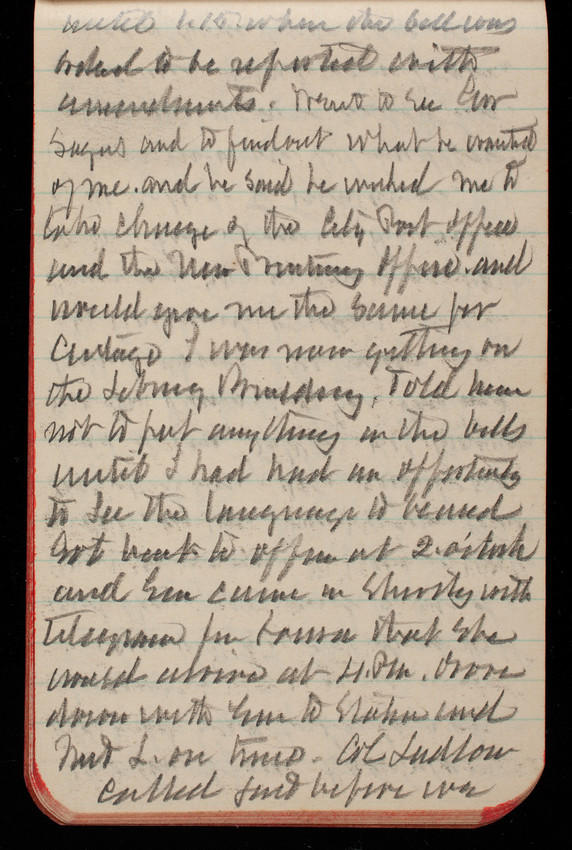 until 1.20 when the bill was
ordered to be reported with
amendments. Went to see Gov
and to find out what he wanted
of me. and he said he wished me to
take charge of the City Post office
and the New Printing Office. and
would give me the same per
centage I was now getting on
the Library Building. Told him
not to put anything in the bills
until I had had an opportunity
to see the language to be used
Got back to office at 2. o'clock
and Gen came in shortly with
telegram from that she
would arrive at 4. P.M. Drove
down with Gen to Station and
Met L. on time. Col Ludlow
called just before we